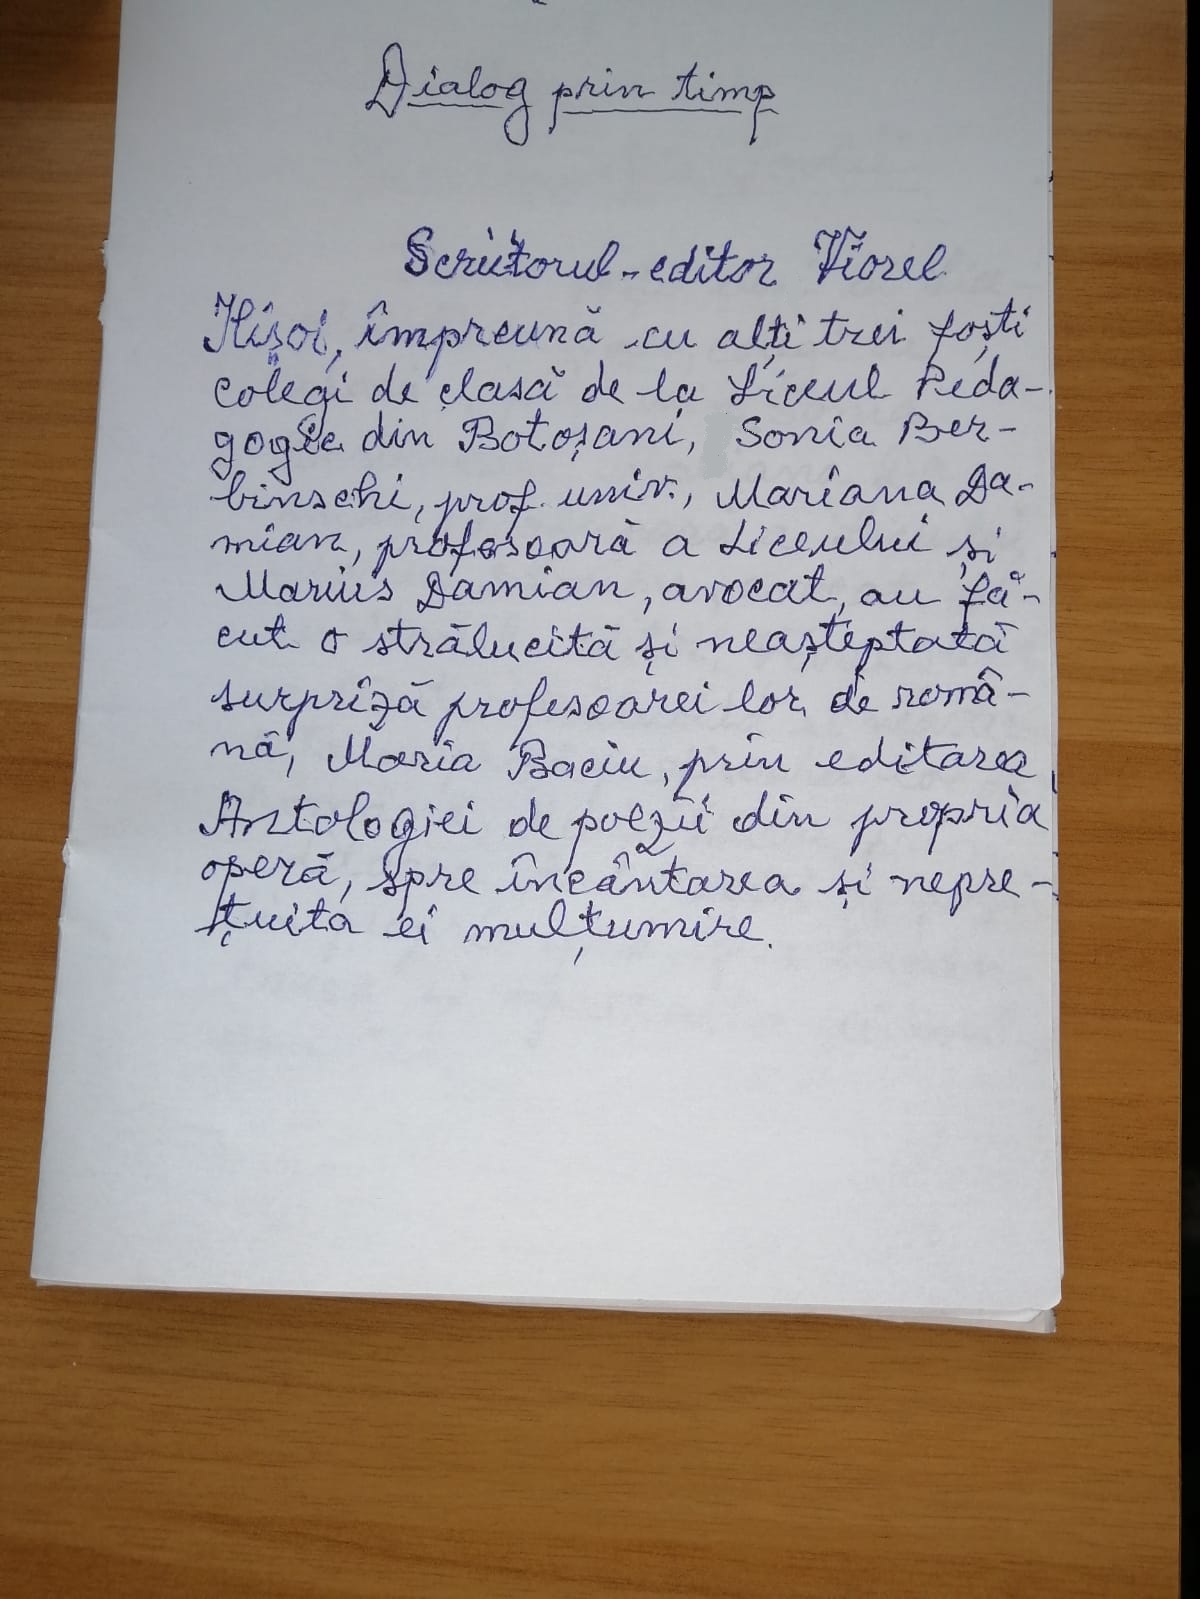 Dialog prin timp
Scriitorul-editor Viorel
Ilișoi, împreună cu alți trei foști
colegi de clasă de la Liceul Peda-
gogic din Botoșani, Sonia Ber-
binschi, prof. univ., Mariana Da-
mian, profesoară a Liceului și
Marius Damian, avocat, au fă-
cut o strălucită și neașteptată
surpriză profesoarei lor de româ-
nă, Maria Baciu, prin editarea
Antologiei de poezii din propria
operă, spre încântarea și nepre-
țuita ei mulțumire.